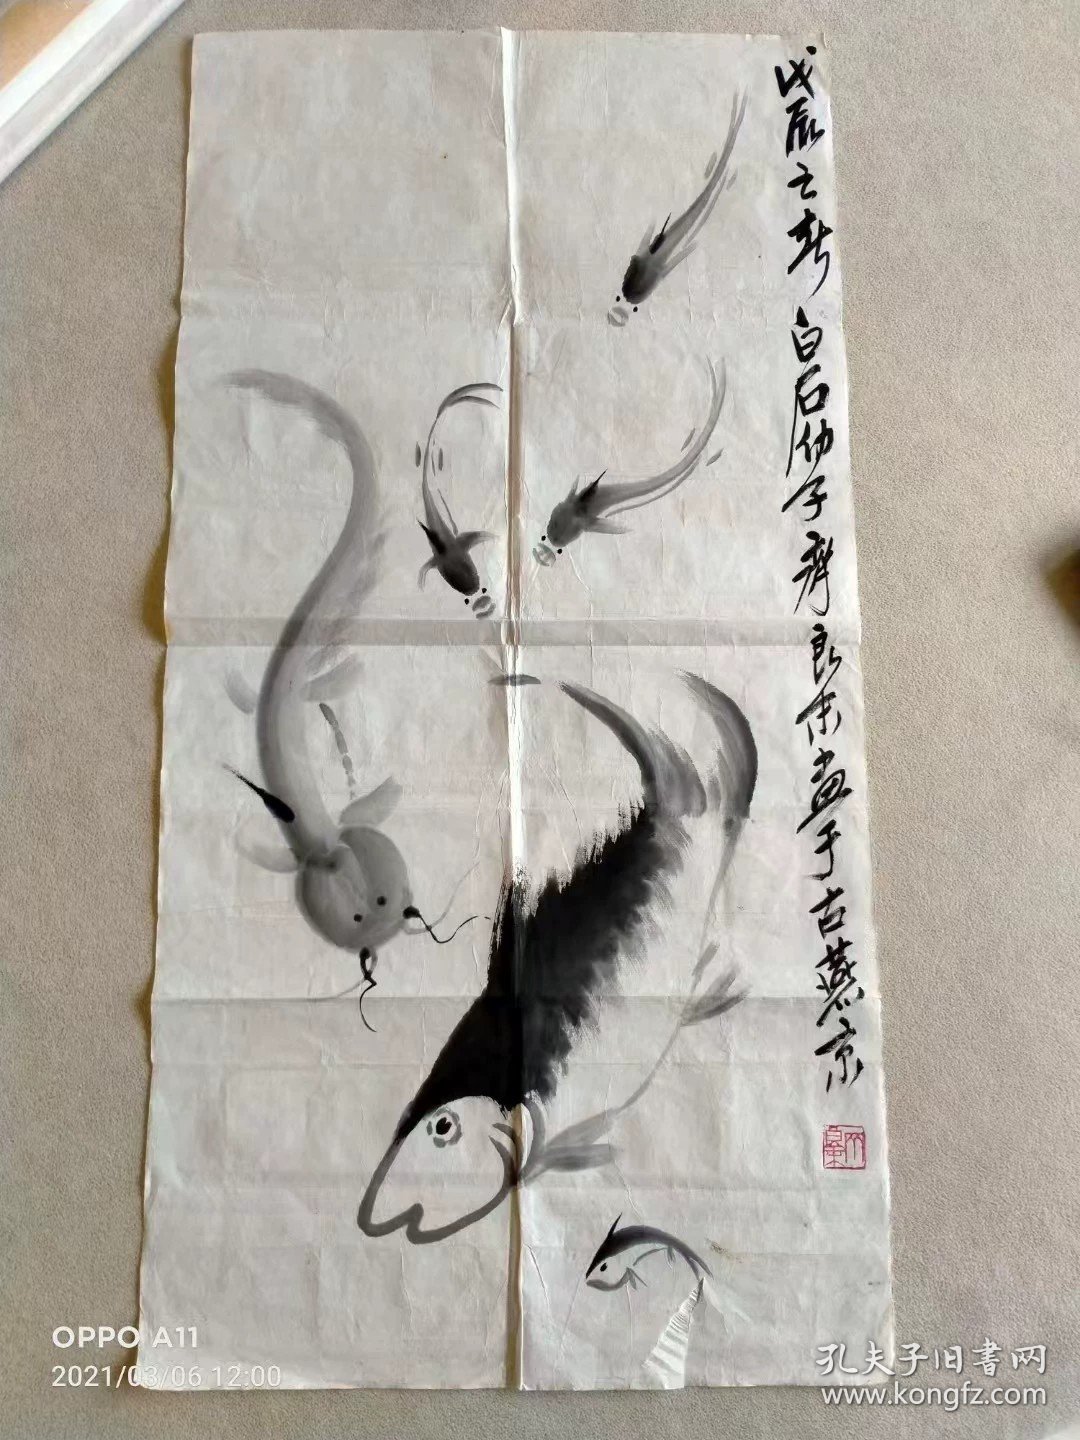 戊辰之春白石幼子齊良末畫于古燕京
OPPO A11
2021/03/06 12:00
孔夫子旧書网
www.kongfz.com